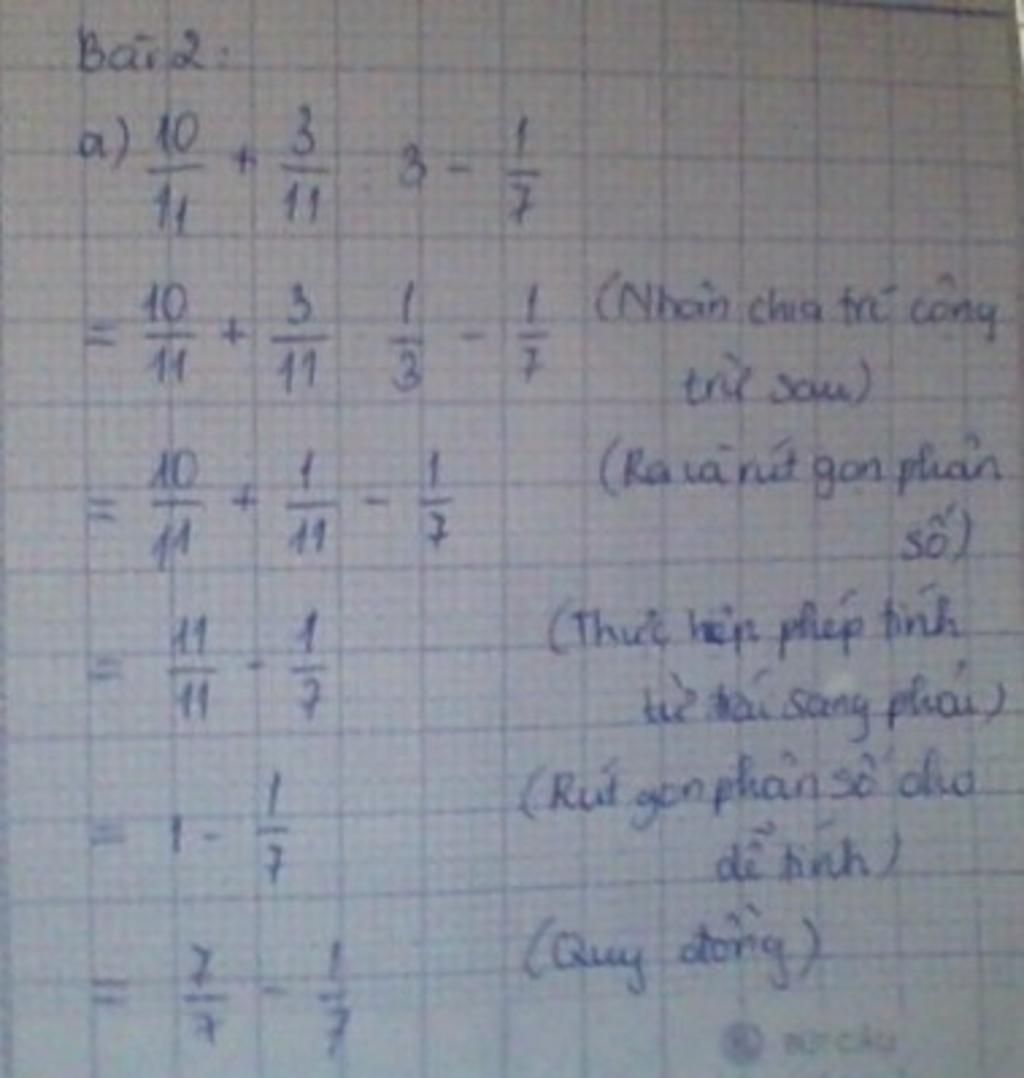 Bài 2:
a) 10/11 + 3/11 : 3 - 1/7
= 10/11 + 3/11 . 1/3 - 1/7 (Nhân chia trc cộng
trừ sau)
= 10/11 + 1/11 - 1/7 (Ra và rút gọn phân
số)
= 11/11 - 1/7 (Thực hiện phép tính
từ trái sang phải)
= 1 - 1/7 (Rút gọn phân số cho
dễ tính)
= 7/7 - 1/7 (Quy đồng)